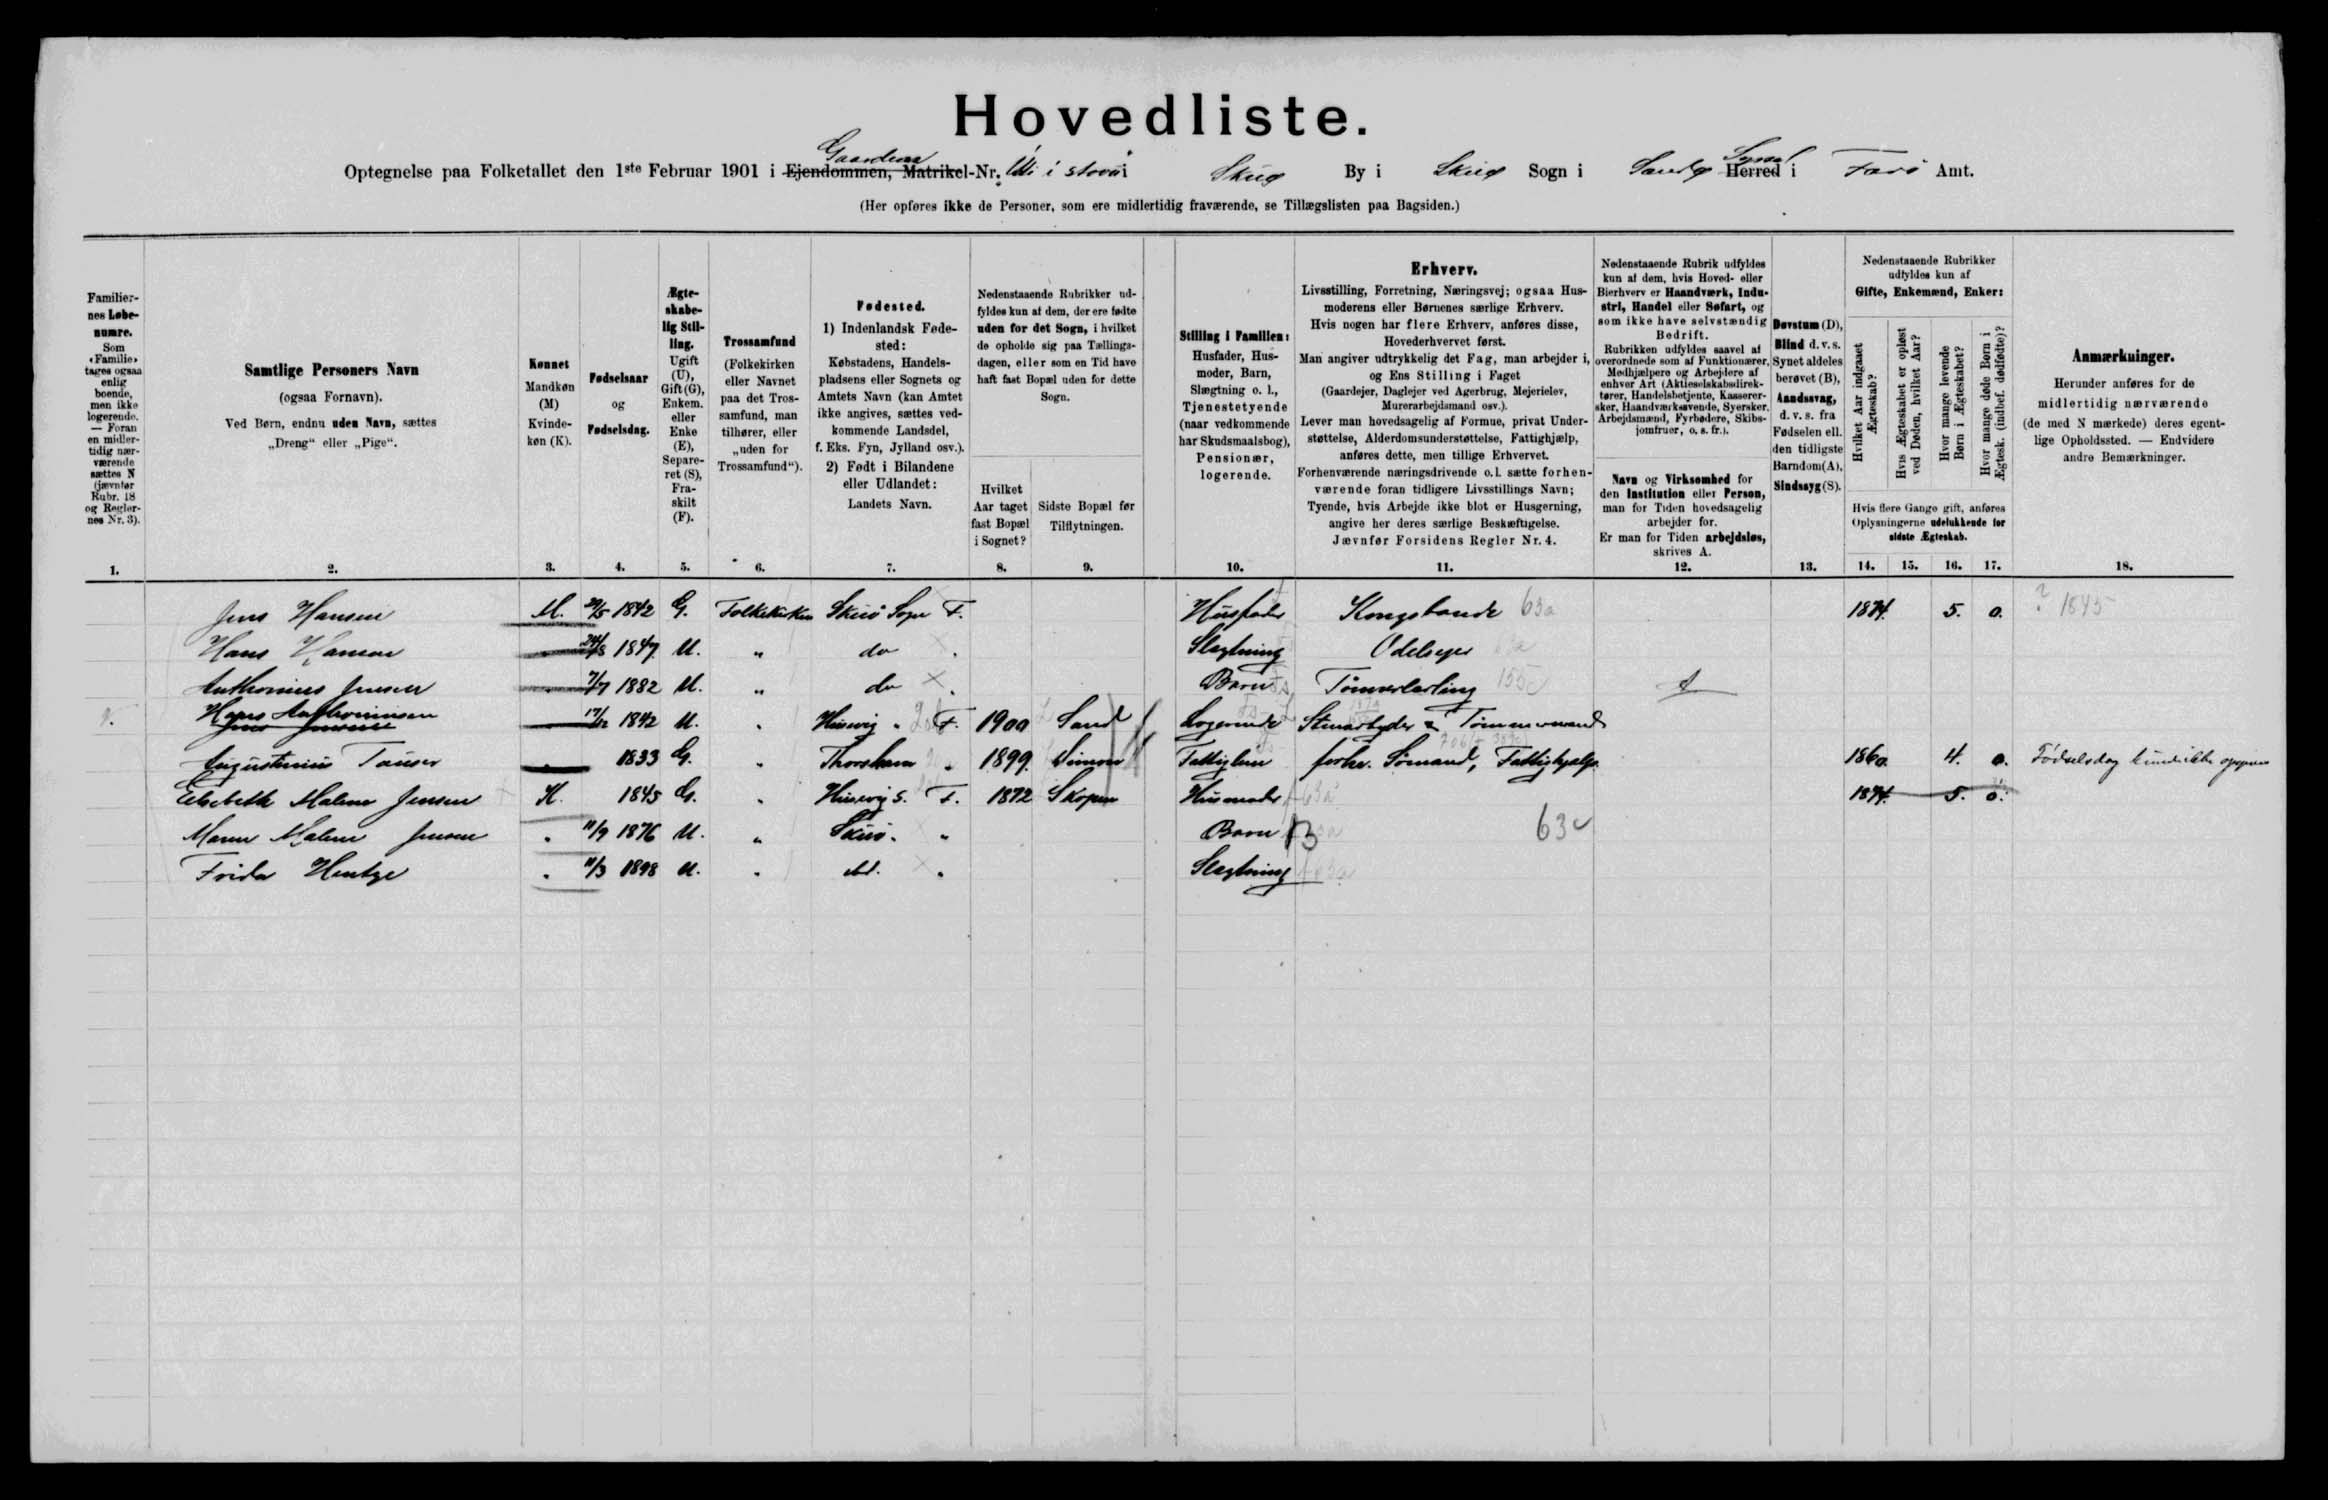 Hovedliste.
Gaardene Syssel
Optegnelse paa Folketallet den 1ste Februar 1901 i Ejendommen, Matrikel-Nr. Uti i stovu i Skuø By i Skuø Sogn i Sandø Herred i Færø Amt.
(Her opføres ikke de Personer, som ere midlertidig fraværende, se Tillægslisten paa Bagsiden.)
Familiernes Løbenumre.
Som «Familie» tages ogsaa enlig boende, men ikke logerende. — Foran en midlertidig nærværende sættes N (jævnfør Rubr. 18 og Reglernes Nr. 3).
Samtlige Personers Navn
(ogsaa Fornavn).
Ved Børn, endnu uden Navn, sættes
„Dreng“ eller „Pige“.
Kønnet
Mandkøn (M)
Kvindekøn (K).
Fødselsaar
og
Fødselsdag.
Ægteskabelig Stilling.
Ugift (U), Gift (G), Enkem. eller Enke (E), Separeret (S), Fraskilt (F).
Trossamfund
(Folkekirken eller Navnet paa det Trossamfund, man tilhører, eller „uden for Trossamfund“).
Fødested.
1) Indenlandsk Fødested:
Købstadens, Handelspladsens eller Sognets og Amtets Navn (kan Amtet ikke angives, sættes vedkommende Landsdel, f. Eks. Fyn, Jylland osv.).
2) Født i Bilandene eller Udlandet:
Landets Navn.
Nedenstaaende Rubrikker udfyldes kun af dem, der ere fødte uden for det Sogn, i hvilket de opholde sig paa Tællingsdagen, eller som en Tid have haft fast Bopæl uden for dette Sogn.
Hvilket Aar taget fast Bopæl i Sognet?
Sidste Bopæl før Tilflytningen.
Stilling i Familien:
Husfader, Husmoder, Barn, Slægtning o. l., Tjenestetyende (naar vedkommende har Skudsmaalsbog), Pensionær, logerende.
Erhverv.
Livsstilling, Forretning, Næringsvej; ogsaa Husmoderens eller Børnenes særlige Erhverv.
Hvis nogen har flere Erhverv, anføres disse, Hovederhvervet først.
Man angiver udtrykkelig det Fag, man arbejder i, og Ens Stilling i Faget
(Gaardejer, Daglejer ved Agerbrug, Mejerielev, Murerarbejdsmand osv.).
Lever man hovedsagelig af Formue, privat Understøttelse, Alderdomsunderstøttelse, Fattighjælp, anføres dette, men tillige Erhvervet.
Forhenværende næringsdrivende o. l. sætte forhenværende foran tidligere Livsstillings Navn;
Tyende, hvis Arbejde ikke blot er Husgerning, angive her deres særlige Beskæftigelse.
Jævnfør Forsidens Regler Nr. 4.
Nedenstaaende Rubrik udfyldes kun af dem, hvis Hoved- eller Bierhverv er Haandværk, Industri, Handel eller Søfart, og som ikke have selvstændig Bedrift.
Rubrikken udfyldes saavel af overordnede som af Funktionærer, Medhjælpere og Arbejdere af enhver Art (Aktieselskabsdirektører, Handelsbetjente, Kasserersker, Haandværkssvende, Syersker, Arbejdsmænd, Fyrbødere, Skibsjomfruer, o. s. fr.).
Navn og Virksomhed for den Institution eller Person, man for Tiden hovedsagelig arbejder for.
Er man for Tiden arbejdsløs, skrives A.
Døvstum (D), Blind d. v. s. Synet aldeles berøvet (B), Aandssvag, d. v. s. fra Fødselen ell. den tidligste Barndom (A), Sindssyg (S).
Nedenstaaende Rubrikker udfyldes kun af
Gifte, Enkemænd, Enker:
Hvilket Aar indgaaet Ægteskab?
Hvis Ægteskabet er opløst ved Døden, hvilket Aar?
Hvor mange levende Børn i Ægteskabet?
Hvor mange døde Børn i Ægtesk. (indbef. dødfødte)?
Hvis flere Gange gift, anføres Oplysningerne udelukkende for sidste Ægteskab.
Anmærkninger.
Herunder anføres for de midlertidig nærværende (de med N mærkede) deres egentlige Opholdssted. — Endvidere andre Bemærkninger.
1. 2. 3. 4. 5. 6. 7. 8. 9. 10. 11. 12. 13. 14. 15. 16. 17. 18.
Jens Hansen M. 1842 G. Folkekirken Skuø Sogn F. Husfader Kongsbonde 63a 1874. 5. 0. ? 1845
Hans Hansen 24/8 1847. U. „ do Slægtning Odelsejer
Anthonius Jensen 7/7 1882 U. „ do Barn Tømrerlærling 155c A
Hans Anthoniussen 17/12 1842 U. „ Husevig „ F. 1900 Sand Logerende Stenarbejder & Tømmermand
Augustinus Tausen 1833 G. „ Thorshavn „ 1899. Dimon Fattiglem forhv. Sømand, Fattighjælp. 1860. 4. 0. Fødselsdag kunde ikke opgives
Elsebeth Malene Jensen K. 1845 G. „ Husevig S. F. 1872 Skopun Husmoder 63a 1874. 5. 0.
Maren Malene Jensen „ 11/9 1876 U. „ Skuø. „ Barn B 63c
Frida Hentze „ 11/3 1898 U. „ do. „ Slægtning